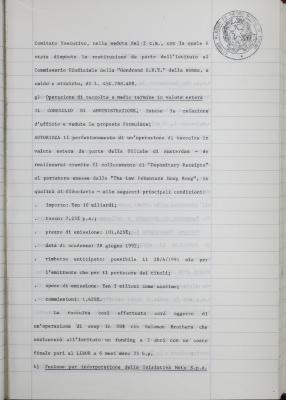 Comitato Esecutivo, nella seduta del 2 c.m., con la quale è
stata disposta la restituzione da parte dell'Istituto al
Commissario Giudiziale della "Gondrand S.N.T." della somma, a
saldo e stralcio, di L.
g) Operazione di raccolta a medio termine in valuta estera
IL CONSIGLIO DI AMMINISTRAZIONE, intesa la relazione
d'ufficio e veduta la proposta formulata;
AUTORIZZA il perfezionamento di un'operazione di raccolta in
valuta estera da parte della filiale di Amsterdam - da
realizzarsi tramite il collocamento di "Depositary Receipts"
al portatore emesse dalla "The Law Debenture Hong Kong", in
qualità di fiduciario - alle seguenti principali condizioni:
. importo: Yen 10 miliardi;
. tasso: 7,25% p.a.;
. prezzo di emissione: 101,625%;
. data di scadenza: 28 giugno 1992;
. rimborso anticipato: possibile il 28/4/1991 sia per
l'emittente che per il portatore dei titoli;
. spese di emissione: Yen 3 milioni come massimo;
. commissioni: 1,625%.
La raccolta così effettuata sarà oggetto di
un'operazione di swap in US$ con Salomon Brothers che
assicurerà all'Istituto un funding a 3 anni con un costo
finale pari al LIBOR a 6 mesi meno 25 b.p.
h) Fusione per incorporazione della Iniziativa Meta S.p.a.